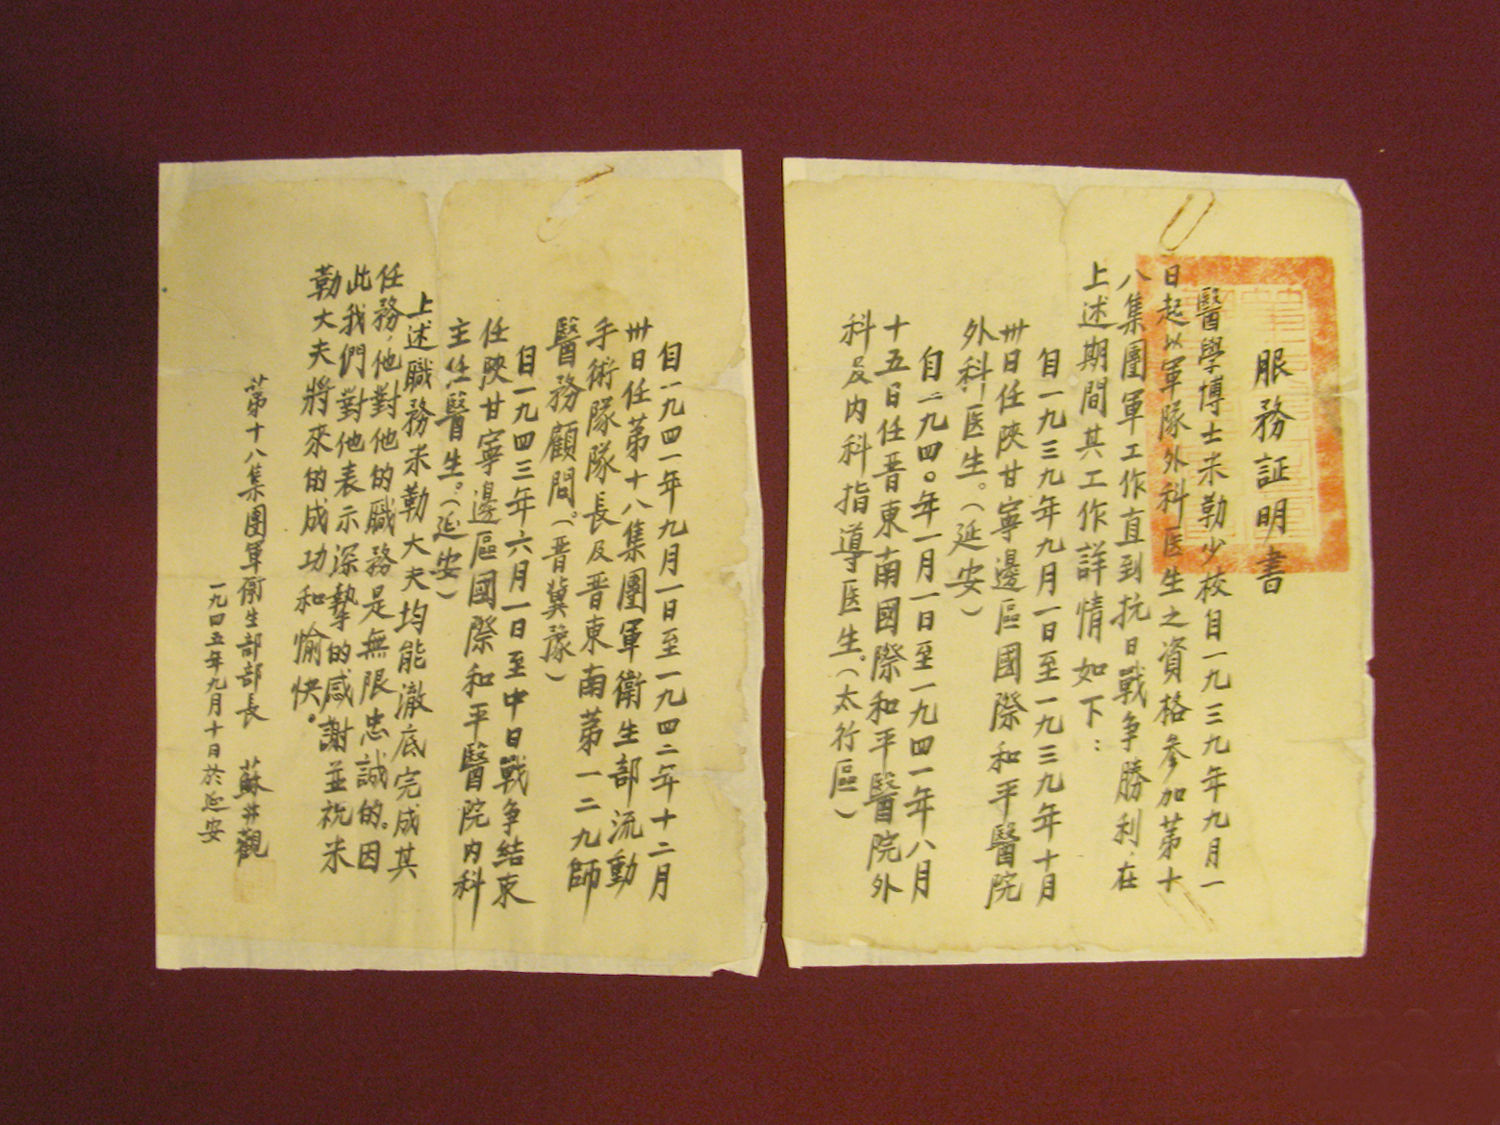 服務証明書
醫學博士米勒少校自一九三九年九月一
日起以軍隊外科医生之資格參加第十
八集團軍工作直到抗日戰争勝利,在
上述期間其工作詳情如下:
自一九三九年九月一日至一九三九年十月
卅日任陝甘寧邊區國際和平醫院
外科医生。(延安)
自一九四〇年一月一日至一九四一年八月
十五日任晋東南國際和平醫院外
科及内科指導医生。(太行區)
自一九四一年九月一日至一九四二年十二月
卅日任第十八集團軍衛生部流動
手術隊隊長及晋東南第一二九師
醫務顧問。(晋冀豫)
自一九四三年六月一日至中日戰争結束
任陝甘寧邊區國際和平醫院内科
主任醫生。(延安)
上述職務米勒大夫均能澈底完成其
任務,他對他的職務是無限忠誠的。因
此我們對他表示深摯的感謝並祝米
勒大夫將來的成功和愉快。
第十八集團軍衛生部部長 蘇井觀
一九四五年九月十日於延安